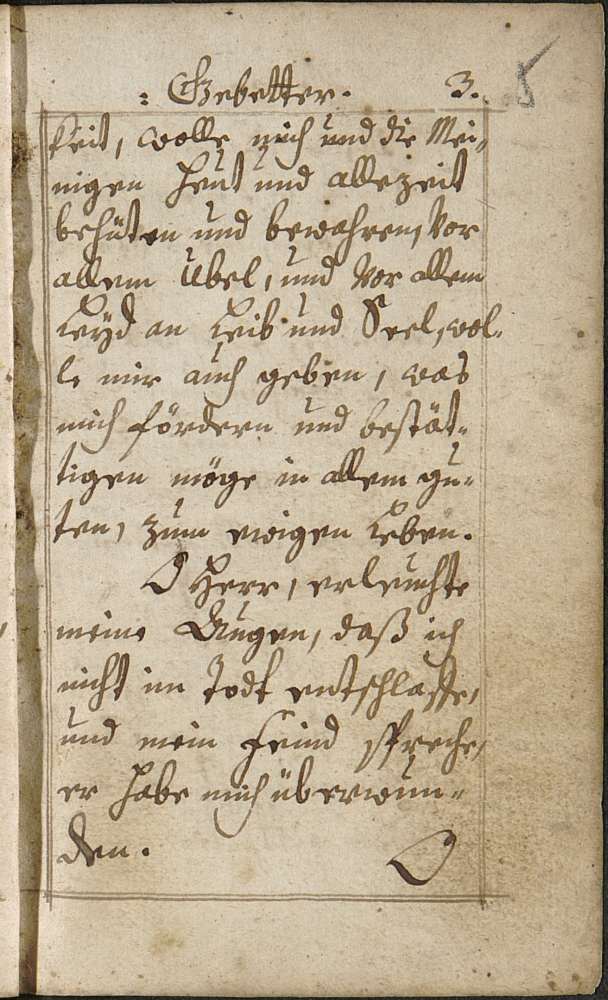 : Gebetter. 3. 5
keit, wolle mich und die Mei„
nigen heut und allezeit
behüten und bewahren, vor
allem Übel, und vor allem
Leyd an Leib und Seel, wol„
le mir auch geben, was
mich fördern und bestät„
tigen möge in allem gu„
ten, zum ewigen Leben.
O Herr, erleuchte
meine Augen, daß ich
nicht im Todt entschlaffe,
und mein Feind spreche,
er habe mich überwun„
den.
O